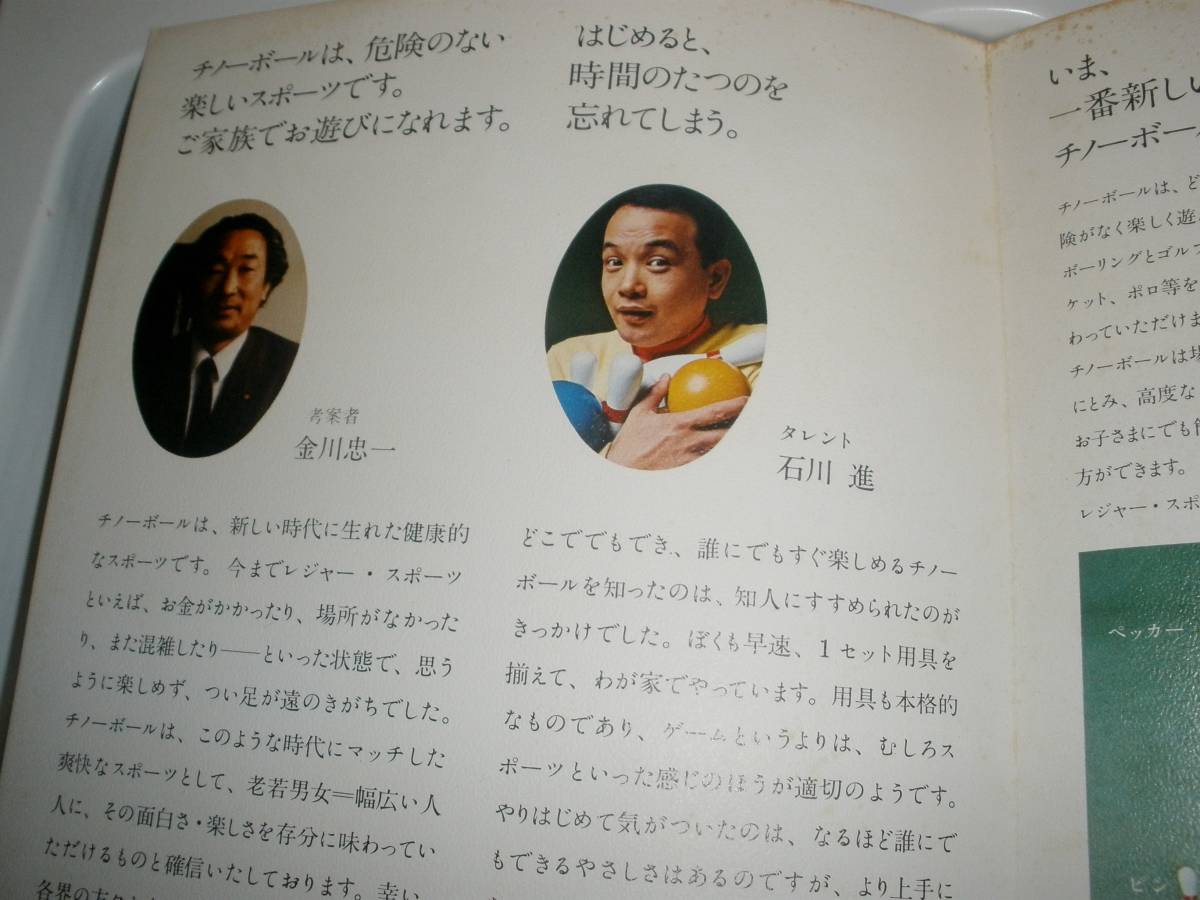 チノーボールは、危険のない
楽しいスポーツです。
ご家族でお遊びになれます。
考案者
金川忠一
チノーボールは、新しい時代に生れた健康的
なスポーツです。今までレジャー・スポーツ
といえば、お金がかかったり、場所がなかった
り、また混雑したり——といった状態で、思う
ように楽しめず、つい足が遠のきがちでした。
チノーボールは、このような時代にマッチした
爽快なスポーツとして、老若男女＝幅広い人
人に、その面白さ・楽しさを存分に味わってい
ただけるものと確信いたしております。幸い、
各界の方々
はじめると、
時間のたつのを
忘れてしまう。
タレント
石川 進
どこででもでき、、誰にでもすぐ楽しめるチノー
ボールを知ったのは、知人にすすめられたのが
きっかけでした。ぼくも早速、1セット用具を
揃えて、わが家でやっています。用具も本格的
なものであり、ゲームというよりは、むしろス
ポーツといった感じのほうが適切のようです。
やりはじめて気がついたのは、なるほど誰にで
もできるやさしさはあるのですが、より上手に
いま、
一番新しい
チノーボー
チノーボールは、ど
険がなく楽しく遊
ボーリングとゴルフ
ケット、ポロ等を
わっていただけま
チノーボールは場
にとみ、高度な
お子さまにでも
方ができます。
レジャー・スポ
ペッカー
ピン